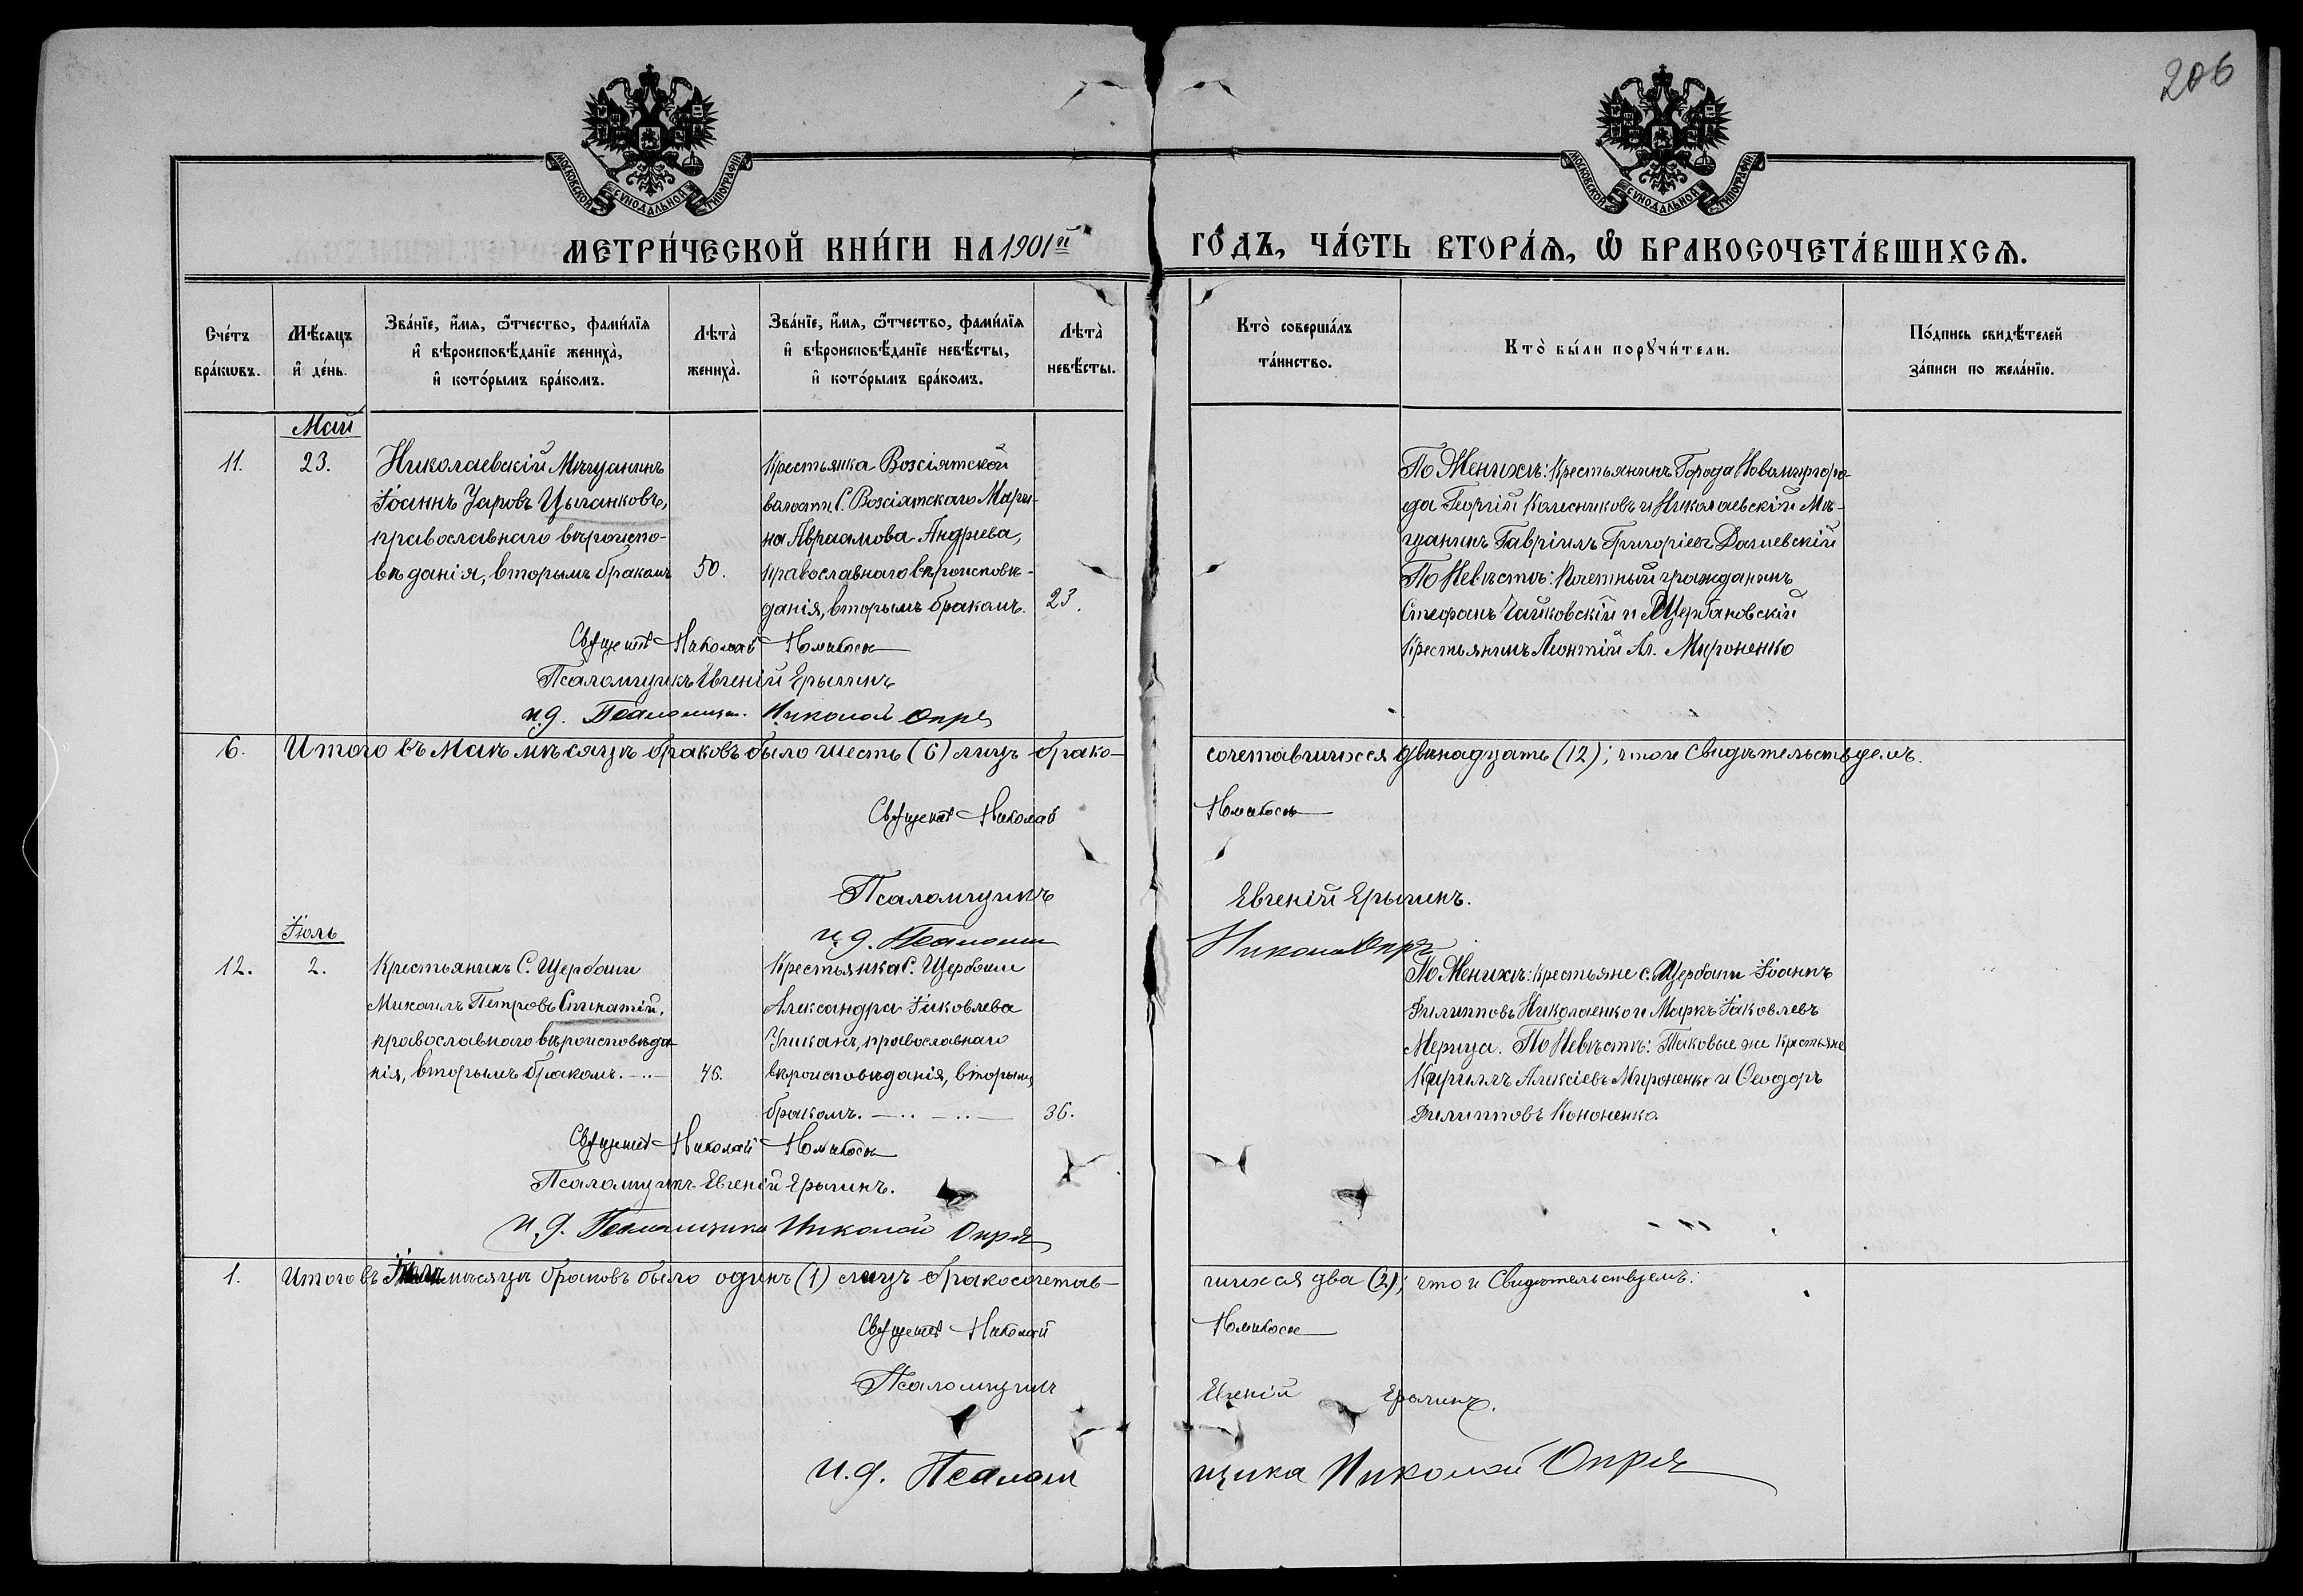 206
МОСКОВСКОЙ СѴНОДАЛЬНОЙ ТИПОГРАФІИ
МОСКОВСКОЙ СѴНОДАЛЬНОЙ ТИПОГРАФІИ
МЕТРИ́ЧЕСКОЙ КНИ́ГИ НА 1901й ГО́ДЪ, ЧА́СТЬ ВТОРА́Я, Ѡ БРАКОСОЧЕТА́ВШИХСЯ.
Сче́тъ бра́кѡвъ.
Мѣ́сяцъ и҆ де́нь.
Зва́нїе, и҆́мя, ѻ҆́тчество, фами́лїя
и҆ вѣроисповѣ́данїе жениха̀,
и҆ кото́рымъ бра́комъ.
Лѣта̀ жениха̀.
Зва́нїе, и҆́мя, ѻ҆́тчество, фами́лїя
и҆ вѣроисповѣ́данїе невѣ́сты,
и҆ кото́рымъ бра́комъ.
Лѣта̀ невѣ́сты.
Кто̀ соверша́лъ та́инство.
Кто̀ бы́ли порꙋчи́тели.
По́дпись свидѣ́телей за́писи по жела́нїю.
Май
11.
23.
Николаевскій Мѣщанинъ
Іоаннъ Уаровъ Цыганковъ,
православнаго вѣроиспо-
вѣданія, вторымъ бракомъ
50.
Крестьянка Возсіятской
волости, С. Возсіятскаго Мари-
на Авраамова Андрѣева,
православнаго вѣроисповѣ-
данія, вторымъ бракомъ.
23.
По Женихѣ: Крестьянинъ Города Новомиргоро-
да Георгій Колесниковъ и Николаевскій Мѣ-
щанинъ Гавріилъ Григоріевъ Далиевскій
По Невѣстѣ: Почетный гражданинъ
Стефанъ Чайковскій и Щербановскій
Крестьянинъ Леонтій Ал. Мироненко
Священ. Николай
Псаломщикъ Евгеній Ерыгинъ
и.д. Псаломщ. Николай Опря
6.
Итого въ Маѣ мѣсяцѣ браковъ было шесть (6) лицъ брако-
сочетавшихся двѣнадцать (12); что и Свидѣтельствуемъ.
Священ. Николай
Псаломщикъ Евгеній Ерыгинъ.
и.д. Псаломщ Николай Опря
Іюль
12.
2.
Крестьянинъ С. Щербани
Михаилъ Петровъ Спикатій,
православнаго вѣроисповѣда-
нія, вторымъ бракомъ.
46.
Крестьянка С. Щербани
Александра Іаковлева
православнаго
вѣроисповѣданія, вторымъ
бракомъ.
36.
По Женихѣ: Крестьяне с. Щербани Іоаннъ
Филипповъ Николаенко и Маркъ Іаковлевъ
Мерица. По Невѣстѣ: Таковые же Крестьяне
Кириллъ Алексіевъ Мироненко и Ѳеодоръ
Филипповъ Кононенко
Священ. Николай
Псаломщикъ Евгеній Ерыгинъ.
И.д. Псаломщика Николай Опря
1.
Итого въ Іюлѣ мѣсяцѣ браковъ было одинъ (1) лицъ бракосочетав-
шихся два (2); что и Свидѣтельствуемъ:
Священ. Николай
Псаломщикъ Евгеній Ерыгинъ.
И.д. Псаломщика Николай Опря